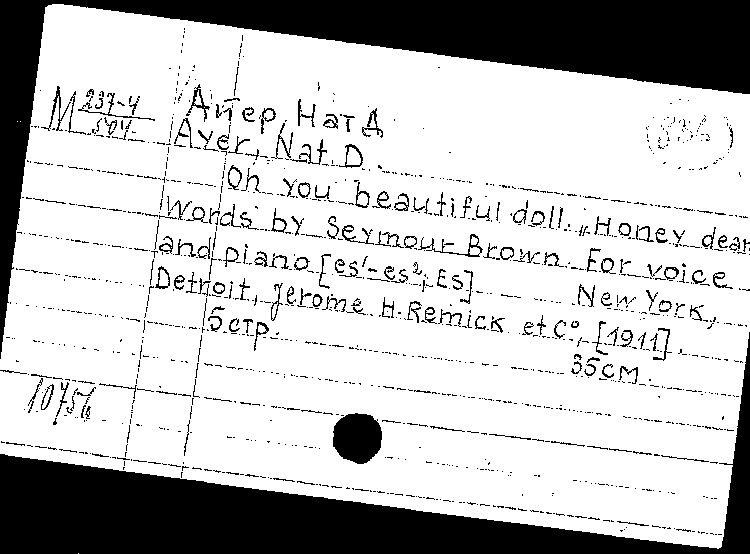 М 237-4
504
Айер, Нат Д.
Ayer, Nat. D.
836
Oh you beautiful doll. „Honey dear
Words by Seymour Brown. For voice
and piano [es¹-es²; Es]
New York,
Detroit, Jerome H. Remick et C°, [1911].
5 стр.
35 см.
10756